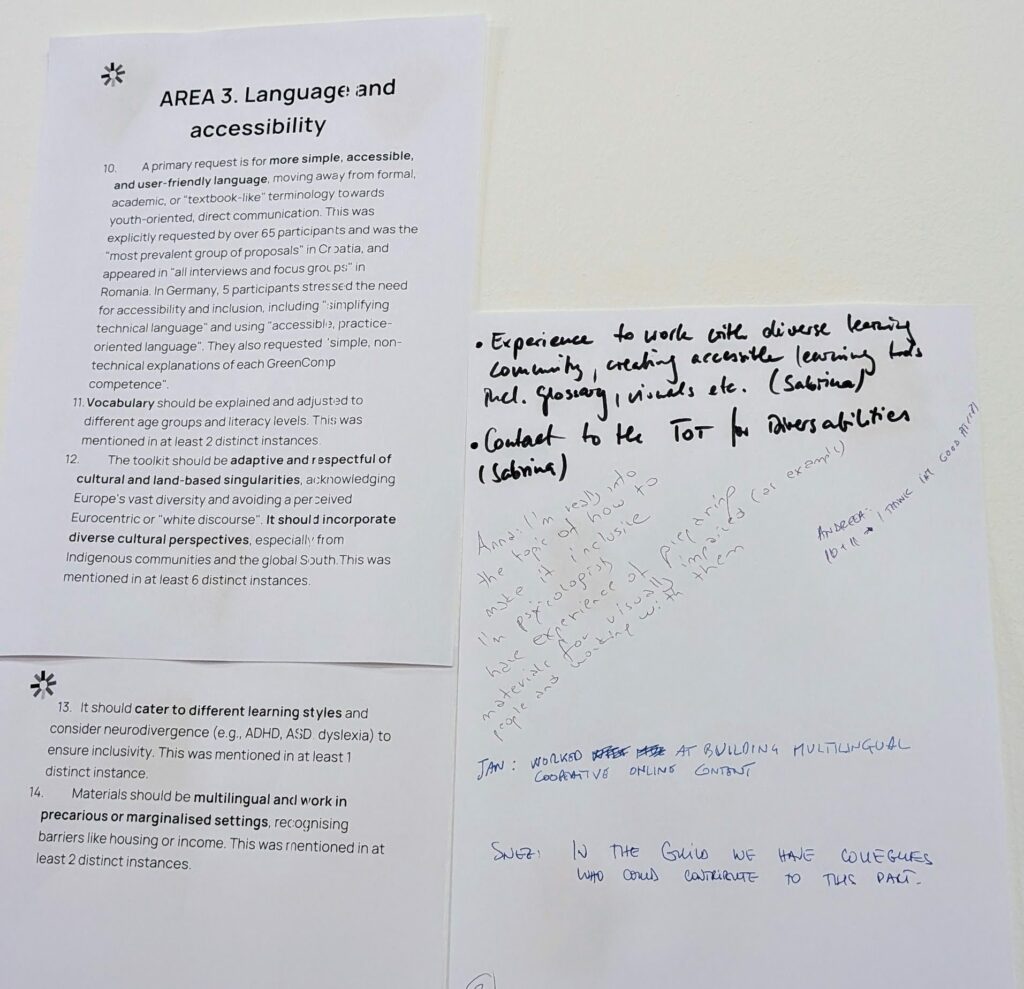 AREA 3. Language and
accessibility
10. A primary request is for more simple, accessible,
and user-friendly language, moving away from formal,
academic, or “textbook-like” terminology towards
youth-oriented, direct communication. This was
explicitly requested by over 65 participants and was the
“most prevalent group of proposals” in Croatia, and
appeared in “all interviews and focus groups” in
Romania. In Germany, 5 participants stressed the need
for accessibility and inclusion, including “simplifying
technical language” and using “accessible, practice-
oriented language”. They also requested “simple, non-
technical explanations of each GreenComp
competence”.
11. Vocabulary should be explained and adjusted to
different age groups and literacy levels. This was
mentioned in at least 2 distinct instances.
12. The toolkit should be adaptive and respectful of
cultural and land-based singularities, acknowledging
Europe’s vast diversity and avoiding a perceived
Eurocentric or “white discourse”. It should incorporate
diverse cultural perspectives, especially from
Indigenous communities and the global South. This was
mentioned in at least 6 distinct instances.
13. It should cater to different learning styles and
consider neurodivergence (e.g., ADHD, ASD, dyslexia) to
ensure inclusivity. This was mentioned in at least 1
distinct instance.
14. Materials should be multilingual and work in
precarious or marginalised settings, recognising
barriers like housing or income. This was mentioned in at
least 2 distinct instances.
• Experience to work with diverse learning
community, creating accessible learning tools
incl. glossary, visuals etc. (Sabrina)
• Contact to the ToT for Diversabilities
(Sabrina)
Anna: I'm really into
the topic of how to
make it inclusive
I'm psycologist
have experience of preparing
materials for visually impaired (as example)
people and working with them
ANDREEA:
10+11 → I THINK I'M GOOD AT IT
JAN: WORKED AT BUILDING MULTILINGUAL
COOPERATIVE ONLINE CONTENT
SNEZ: IN THE GUILD WE HAVE COLLEGUES
WHO COULD CONTRIBUTE TO THIS PART.